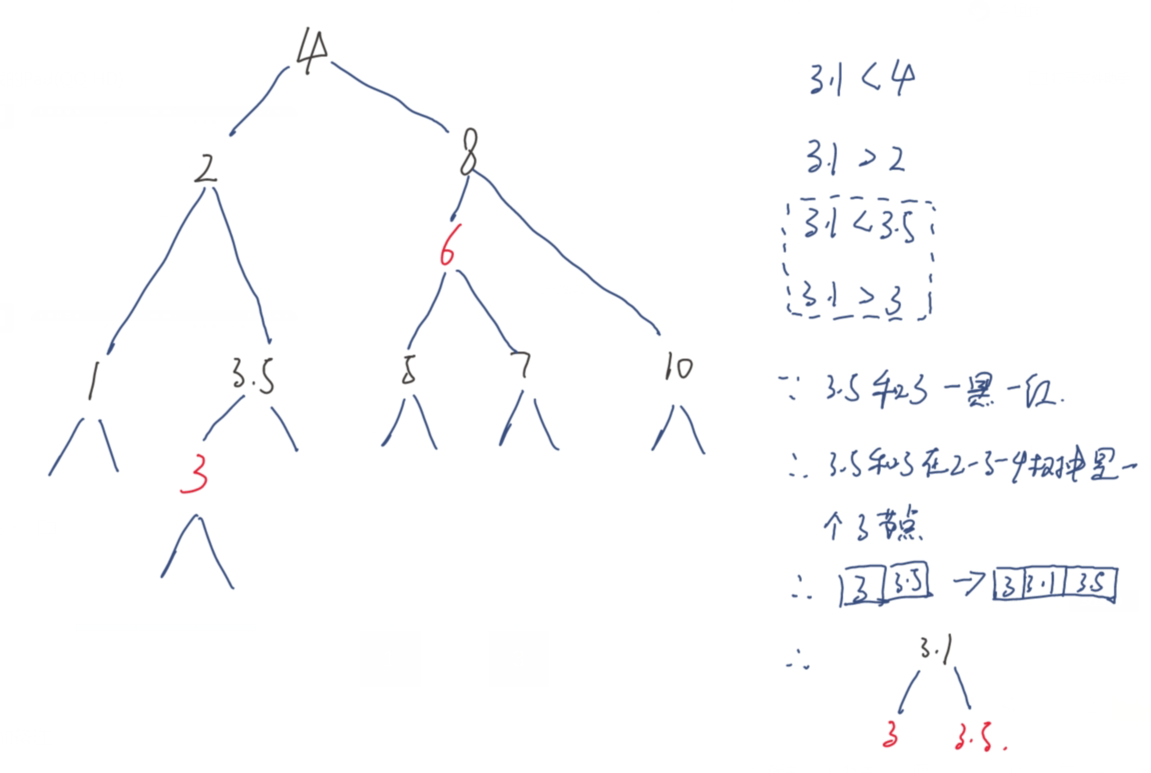 4
2 8
6
1 3.5 5 7 10
3
3.1 < 4
3.1 > 2
3.1 < 3.5
3.1 > 3
∵ 3.5和3一黑一红.
∴ 3.5和3在2-3-4树中是一
个3节点
∴ 3 3.5 → 3 3.1 3.5
∴ 3.1
3 3.5.